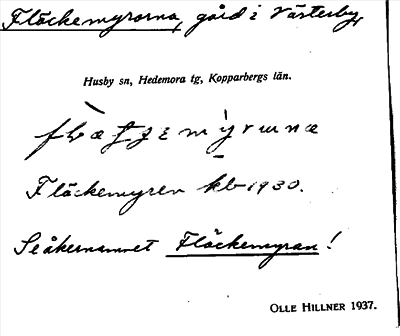 Fläckemyrorna, gård i Västerby,
Husby sn, Hedemora tg, Kopparbergs län.
Fläckemyren kb 1930.
Se åkernamnet Fläckemyran!
OLLE HILLNER 1937.